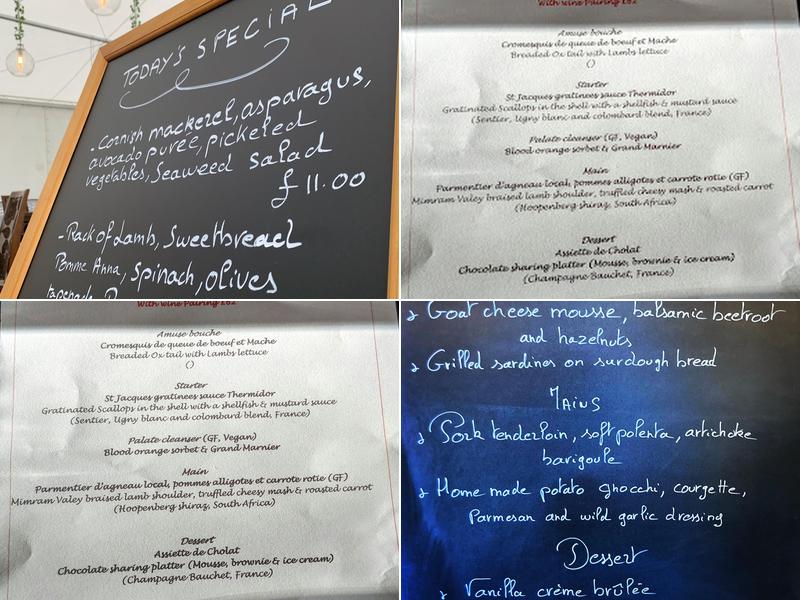 TODAY'S SPECIAL
- Cornish mackerel, asparagus,
avocado purée, pickeled
vegetables, Seaweed salad
£ 11.00
- Rack of Lamb, Sweetbread
Pomme Anna, Spinach, olives
tapenade
With wine Pairing £62
Amuse bouche
Cromesquis de queue de boeuf et Mache
Breaded Ox tail with Lambs lettuce
()
Starter
St Jacques gratinees sauce Thermidor
Gratinated Scallops in the shell with a shellfish & mustard sauce
(Sentier, Ugny blanc and colombard blend, France)
Palate cleanser (GF, Vegan)
Blood orange sorbet & Grand Marnier
Main
Parmentier d'agneau local, pommes alligotes et carrote rotie (GF)
Mimram Valey braised lamb shoulder, truffled cheesy mash & roasted carrot
(Hoopenberg shiraz, South Africa)
Dessert
Assiette de Cholat
Chocolate sharing platter (Mousse, brownie & ice cream)
(Champagne Bauchet, France)
With wine Pairing £62
Amuse bouche
Cromesquis de queue de boeuf et Mache
Breaded Ox tail with Lambs lettuce
()
Starter
St Jacques gratinees sauce Thermidor
Gratinated Scallops in the shell with a shellfish & mustard sauce
(Sentier, Ugny blanc and colombard blend, France)
Palate cleanser (GF, Vegan)
Blood orange sorbet & Grand Marnier
Main
Parmentier d'agneau local, pommes alligotes et carrote rotie (GF)
Mimram Valey braised lamb shoulder, truffled cheesy mash & roasted carrot
(Hoopenberg shiraz, South Africa)
Dessert
Assiette de Cholat
Chocolate sharing platter (Mousse, brownie & ice cream)
(Champagne Bauchet, France)
Goat cheese mousse, balsamic beetroot
and hazelnuts
Grilled sardines on surdough bread
MAINS
Pork tenderloin, soft polenta, artichoke
barigoule
Home made potato gnocchi, courgette,
Parmesan and wild garlic dressing
Dessert
Vanilla crème brûlée